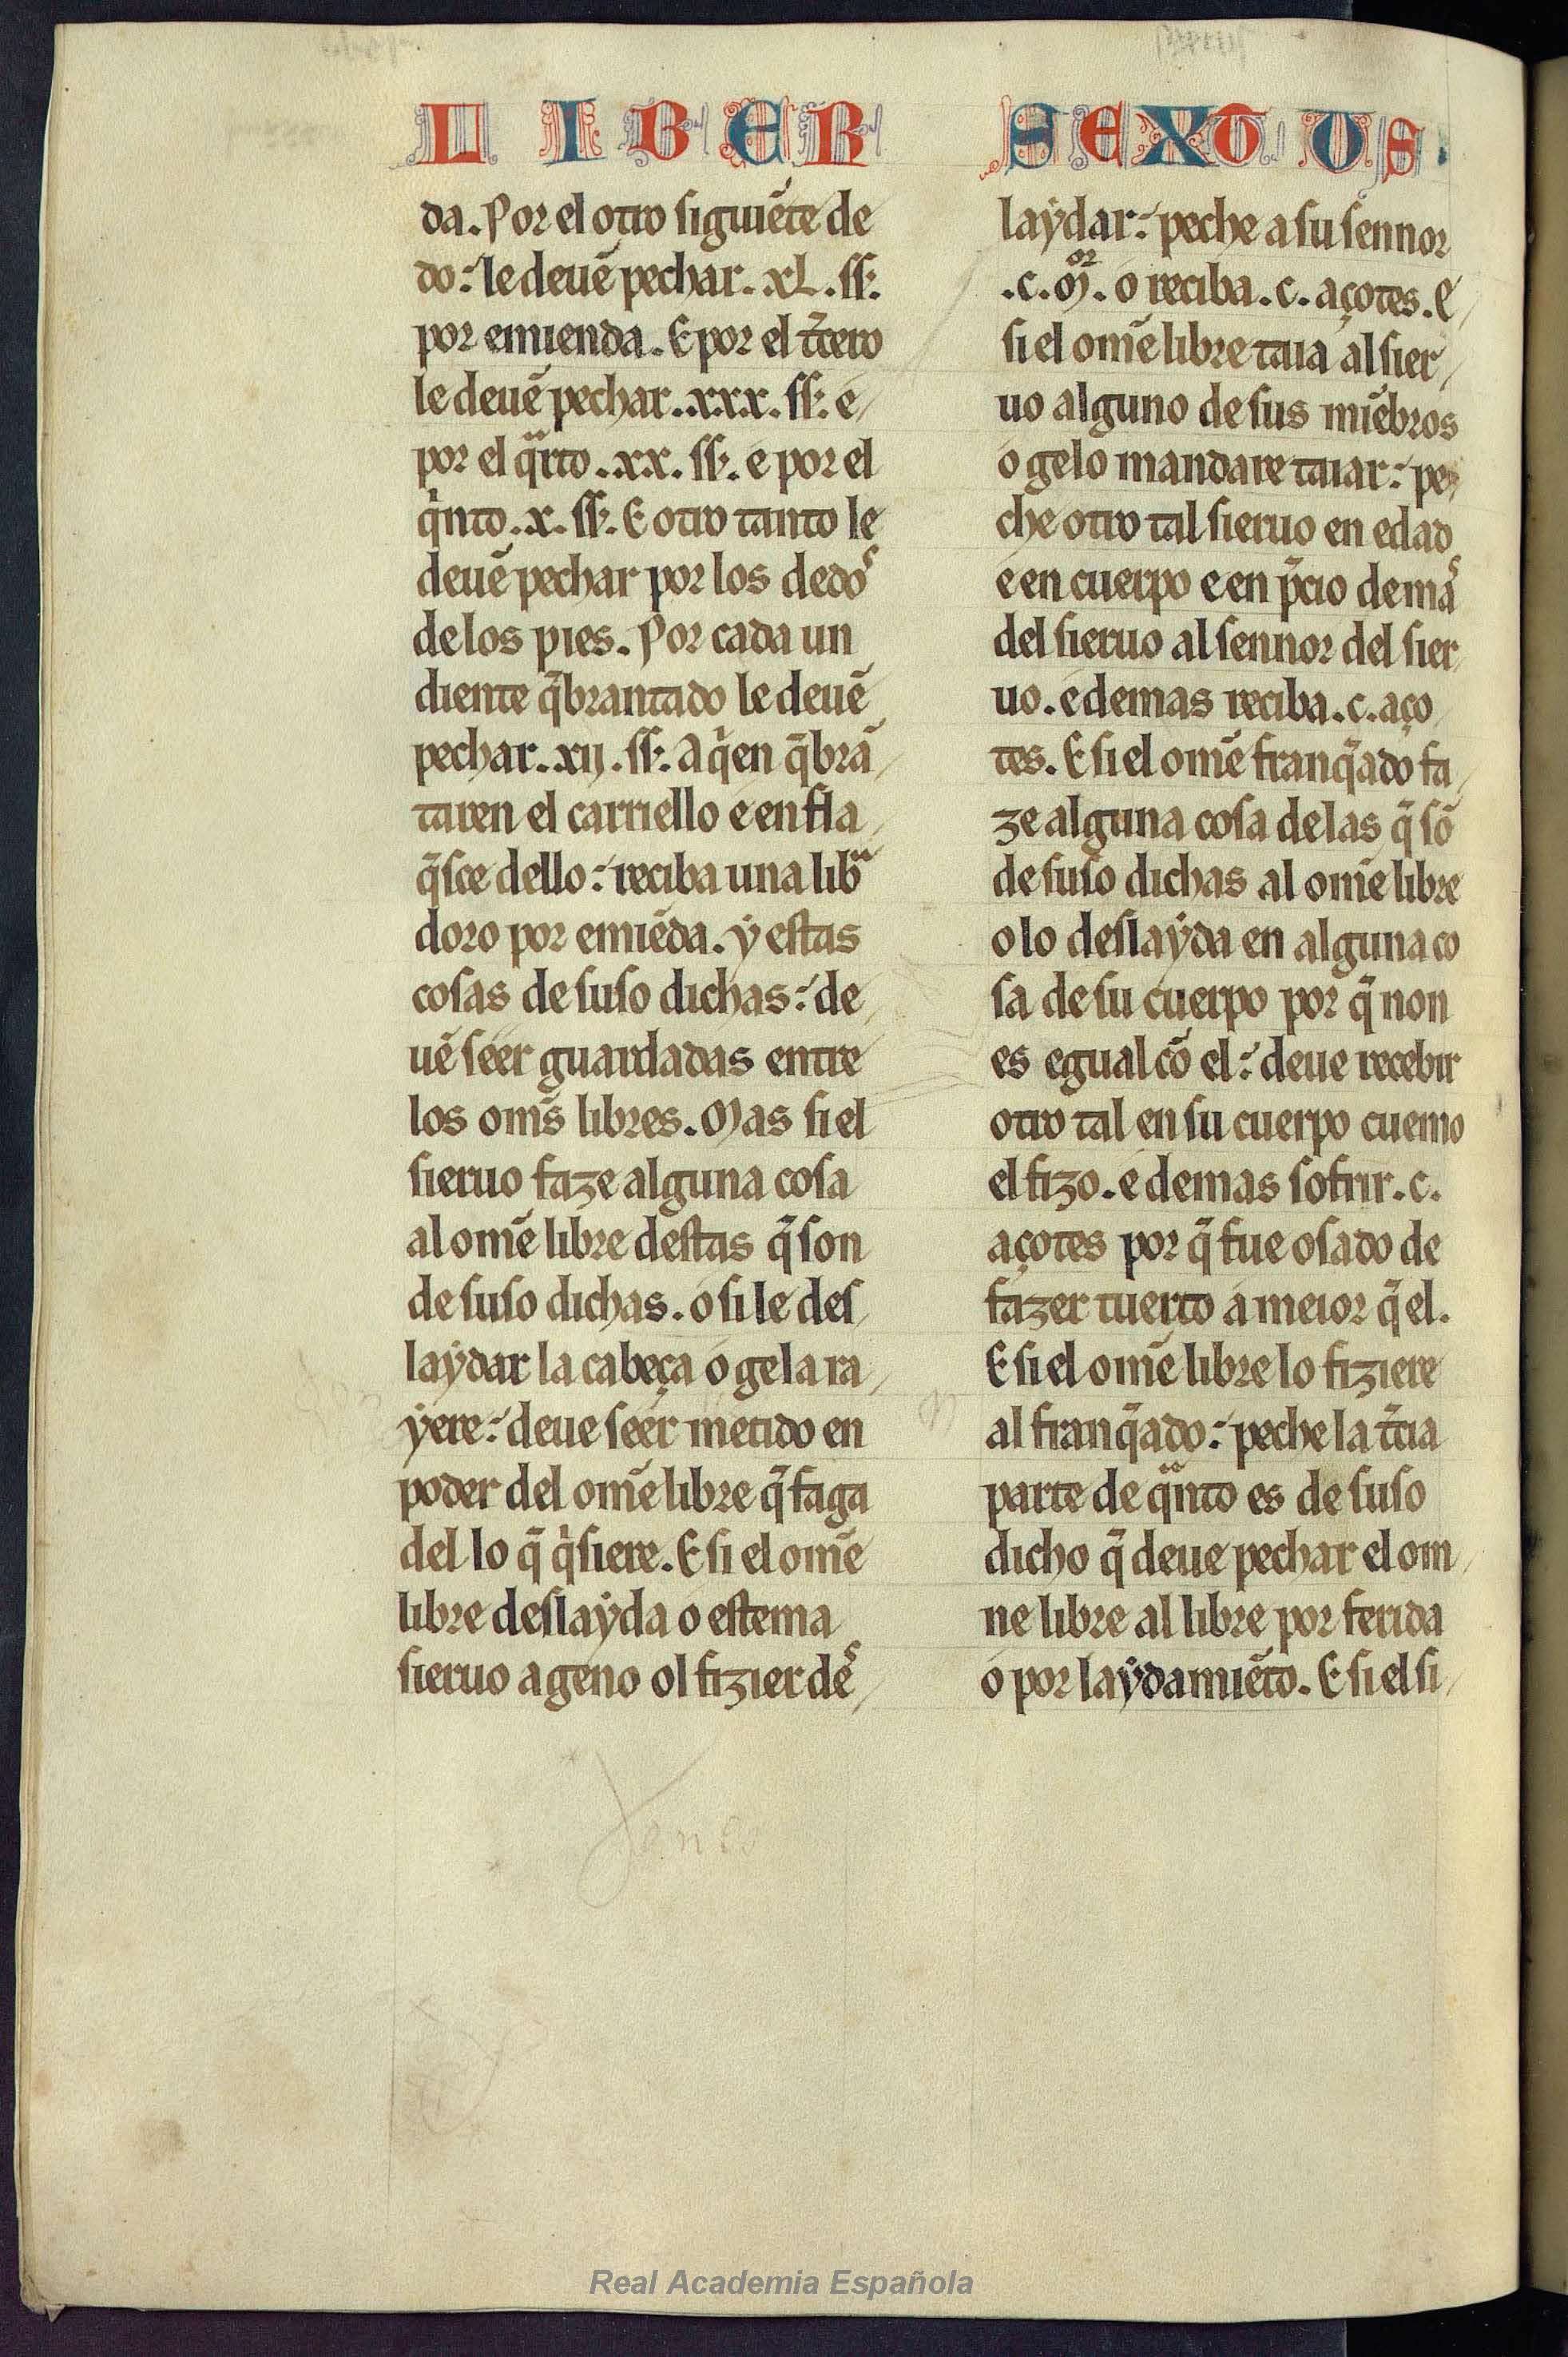 LIBER SEXTUS.
da. Por el otro siguiẽte de
do: le deuẽ pechar. xL. ſſ.
por emienda. E por el t̃cero
le deuẽ pechar. xxx. ſſ. e
por el qͣrto. xx. ſſ. e por el
qͥnto. x. ſſ. E otro tanto le
deuẽ pechar por los dedoˢ
de los pies. Por cada un
diente q̃brantado le deuẽ
pechar. xij. ſſ. A qͥen q̃brã
taren el carriello e enfla
q̃sce dello: reciba una libͣ
doro por emiẽda. ẏ eſtas
coſas de ſuſo dichas: de
uẽ ſeer guardadas entre
los om̃s libres. Mas ſi el
ſieruo faze alguna coſa
al omẽ libre deſtas q̃ ſon
de ſuſo dichas. o ſi le deſ
laẏdar la cabeça o gela ra
ẏere: deue ſeer metido en
poder del omẽ libre q̃ faga
del lo q̃ qͥſiere. E ſi el omẽ
libre deſlaẏda o eſtema
ſieruo ageno ol fizier deˢ
laẏdar: peche a ſu ſennor
.c. mͦʳ. o reciba. c. açotes. E
ſi el omẽ libre taia al ſier
uo alguno de ſus miẽbros
o gelo mandare taiar: pe
che otro tal ſieruo en edad
e en cuerpo e en p̃cio de maˢ
del ſieruo al ſennor del ſier
uo. e demas reciba. c. aço
tes. E ſi el omẽ franq̃ado fa
ze alguna coſa de las q̃ ſõ
de ſuſo dichas al omẽ libre
o lo deſlaẏda en alguna co
ſa de ſu cuerpo por q̃ non
es egual cõ el: deue recebir
otro tal en ſu cuerpo cuemo
el fizo. e demas ſofrir. c.
açotes por q̃ fue oſado de
fazer tuerto a meior q̃ el.
E ſi el omẽ libre lo fiziere
al franq̃ado: peche la t̃cia
parte de qͣnto es de ſuſo
dicho q̃ deue pechar el om
ne libre al libre por ferida
o por laẏdamiẽto. E ſi el ſi
Real Academia Española